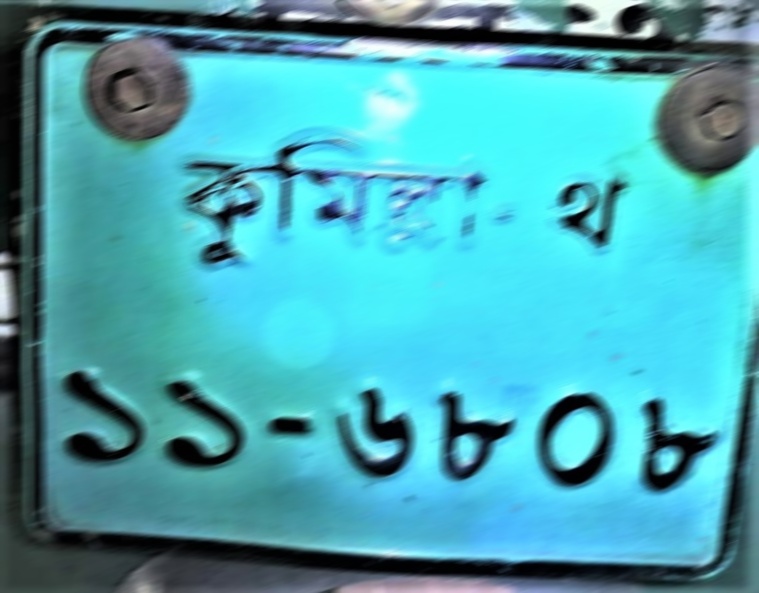 কুমিল্লা- থ
১১-৬৮০৮